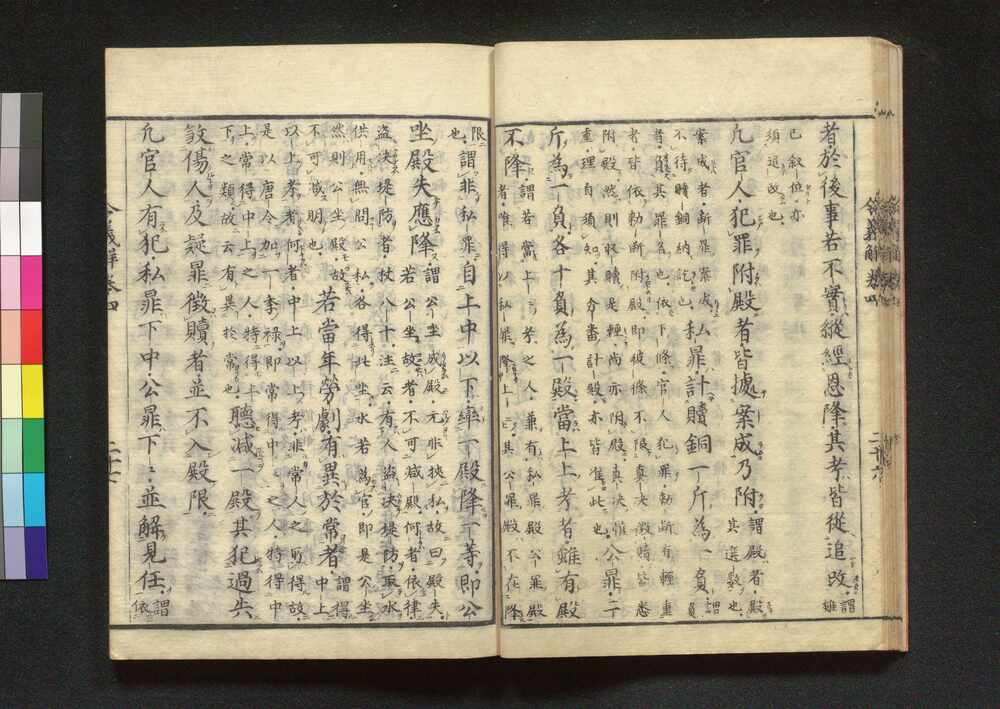 者於後事若不實縱經恩降其考皆從追改謂雖
已敍位亦
須追改也
凡官人犯罪附殿者皆據案成乃附謂殿者殿
其選數也
案成者斷罪案成
不待贖銅納訖也私罪計贖銅一斤為一負謂負
者負其罪名也依下條官人犯罪勘斷有輕重
者皆依勘斷附殿即彼條不限真決徵贖皆悉
附殿然則收贖是輕尚亦附殿真決惟
重理自須知其分番計殿亦皆准此也公罪二
斤為一負各十負為一殿當上上考者雖有殿
不降謂若當上上考之人兼有私罪殿公罪殿
者唯得以私罪降上上其公罪殿不在降
限
也謂非私罪自上中以下率一殿降一等即公
坐殿失應降謂公坐成殿元非挾私故曰殿失
若公坐故者不可減殿何者依律
盜決堤防者杖八十注云有人盜決堤防取水
供用無問公私各得此坐水若為官即是公坐
然則公坐殿故
不可減明也若當年勞劇有異於常者謂得
中上
以上考者何者中上以上考非常人之可得故
是以唐令加一季祿即常得中中之人特得中
上常得中上之人特得上下
下之類故云有異於常也聽減一殿其犯過失
殺傷人及疑罪徵贖者並不入殿限
凡官人有犯私罪下中公罪下下並解見任謂
依
令義解卷四
二十六
令義解卷四